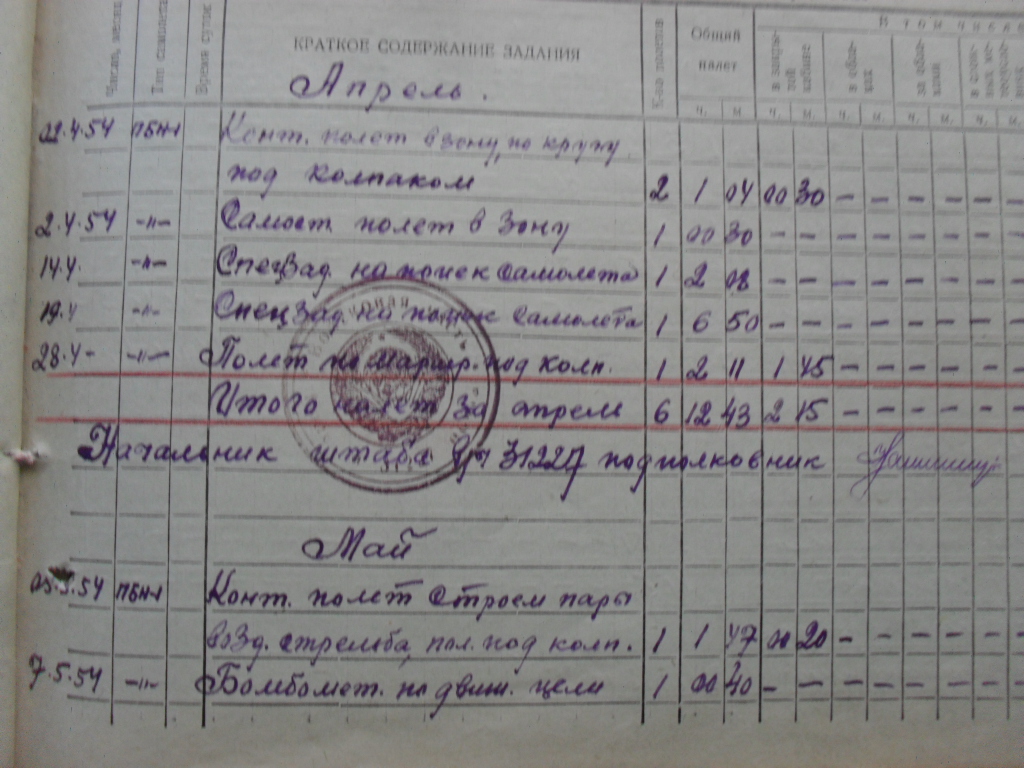 Число, месяц
Тип самолета
Время суток
КРАТКОЕ СОДЕРЖАНИЕ ЗАДАНИЯ
К-во полетов
Общий налет
В том числе
в закрытой кабине
в облаках
за облаками
ч. м. ч. м. ч. м. ч. м. ч.
Апрель.
02.4.54 ПБН-1 Конт. полет в зону, по кругу
под колпаком 2 1 04 00 30 – – – – –
2.4.54 –"– Самост. полет в зону 1 00 30 – – – – – – –
14.4. –"– Спецзад. на поиск самолета 1 2 08 – – – – – – –
19.4 –"– Спецзад. на поиск самолета 1 6 50 – – – – – – –
28.4– –"– Полет по маршр. под колп. 1 2 11 1 45 – – – – –
Итого налет за апрель 6 12 43 2 15 – – – – –
Начальник штаба в/ч 31227 подполковник
Май
05.5.54 ПБН-1 Конт. полет строем пары
возд. стрельба, пол. под колп. 1 1 47 00 20 – – – – –
7.5.54 –"– Бомбомет. по движ. цели 1 00 40 – – – – – – –